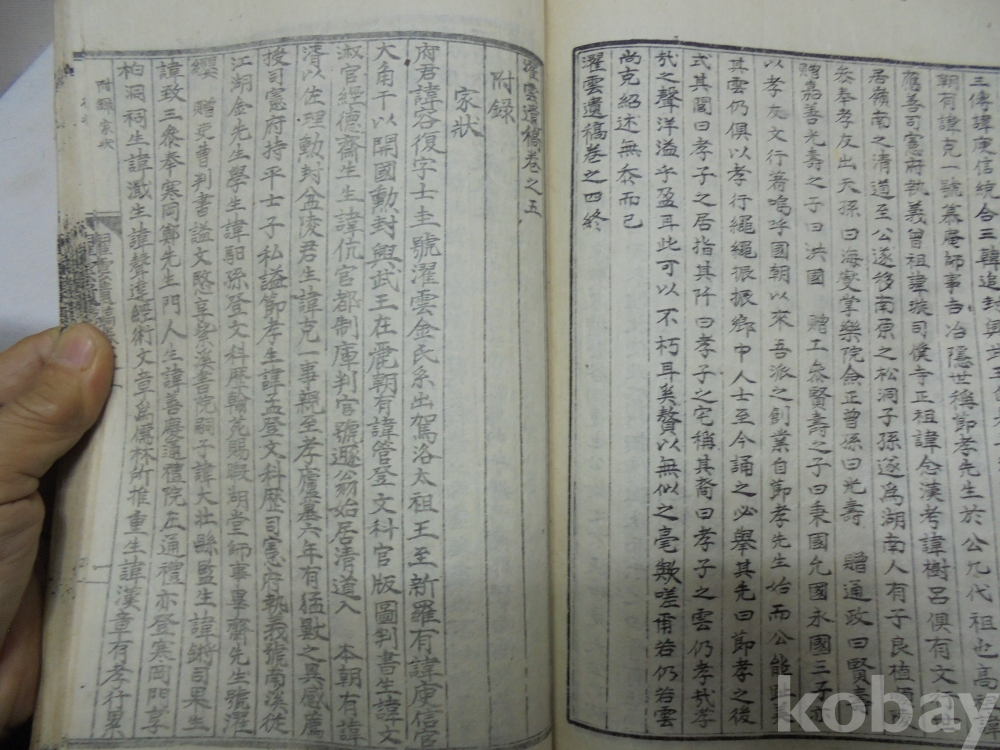 三傳諱庾信統合三韓追封興武王
朝有諱克一號慕庵師事吉冶隱世稱節孝先生於公九代祖也高
應善司憲府執義曾祖諱漩司僕寺正祖諱念漢考諱樹呂俱有文
居嶺南之清道至公遂移南原之松洞子孫遂爲湖南人有子良植
參奉孝友出天孫曰海燮掌樂院僉正曾孫曰光壽 贈通政曰賢壽
贈嘉善光壽之子曰洪國 贈工參賢壽之子曰秉國允國永國三子
以孝友文行著嗚呼國朝以來吾派之創業自節孝先生始而公能
其雲仍俱以孝行繩繩振振鄉中人士至今誦之必舉其先曰節孝之後
式其閭曰孝子之居指其阡曰孝子之宅稱其裔曰孝子之雲仍孝哉孝
哉之聲洋溢乎盈耳此可以不朽耳矣贅以無似之毫歎嗟甫若仍若雲
尚克紹述無忝而已
濯雲遺稿卷之四終
濯雲遺稿卷之五
附録
家狀
府君諱容復字士圭號濯雲金氏系出駕洛太祖王至新羅有諱庾信官
大角干以開國勳封興武王在麗朝有諱管登文科官版圖判書生諱文
淑官經德齋生生諱伉官都制庫判官號遯翁始居清道入 本朝有諱
湑以佐理勳封金陵君生諱克一事親至孝廬墓六年有猛獸之異感薦
授司憲府持平士子私謚節孝生諱孟登文科歷司憲府執義號南溪從
江湖金先生學生諱馹孫登文科歷翰苑賜暇湖堂師事畢齋先生號濯
纓 贈吏曹判書謚文愍享紫溪書院嗣子諱大壯縣監生諱鏘司果生
諱致三參奉寒岡鄭先生門人生諱善慶通禮院左通禮亦登寒岡門享
柏洞祠生諱瀻生諱聲遠經術文章爲儒林所推重生諱漢章有孝行累
附録家狀